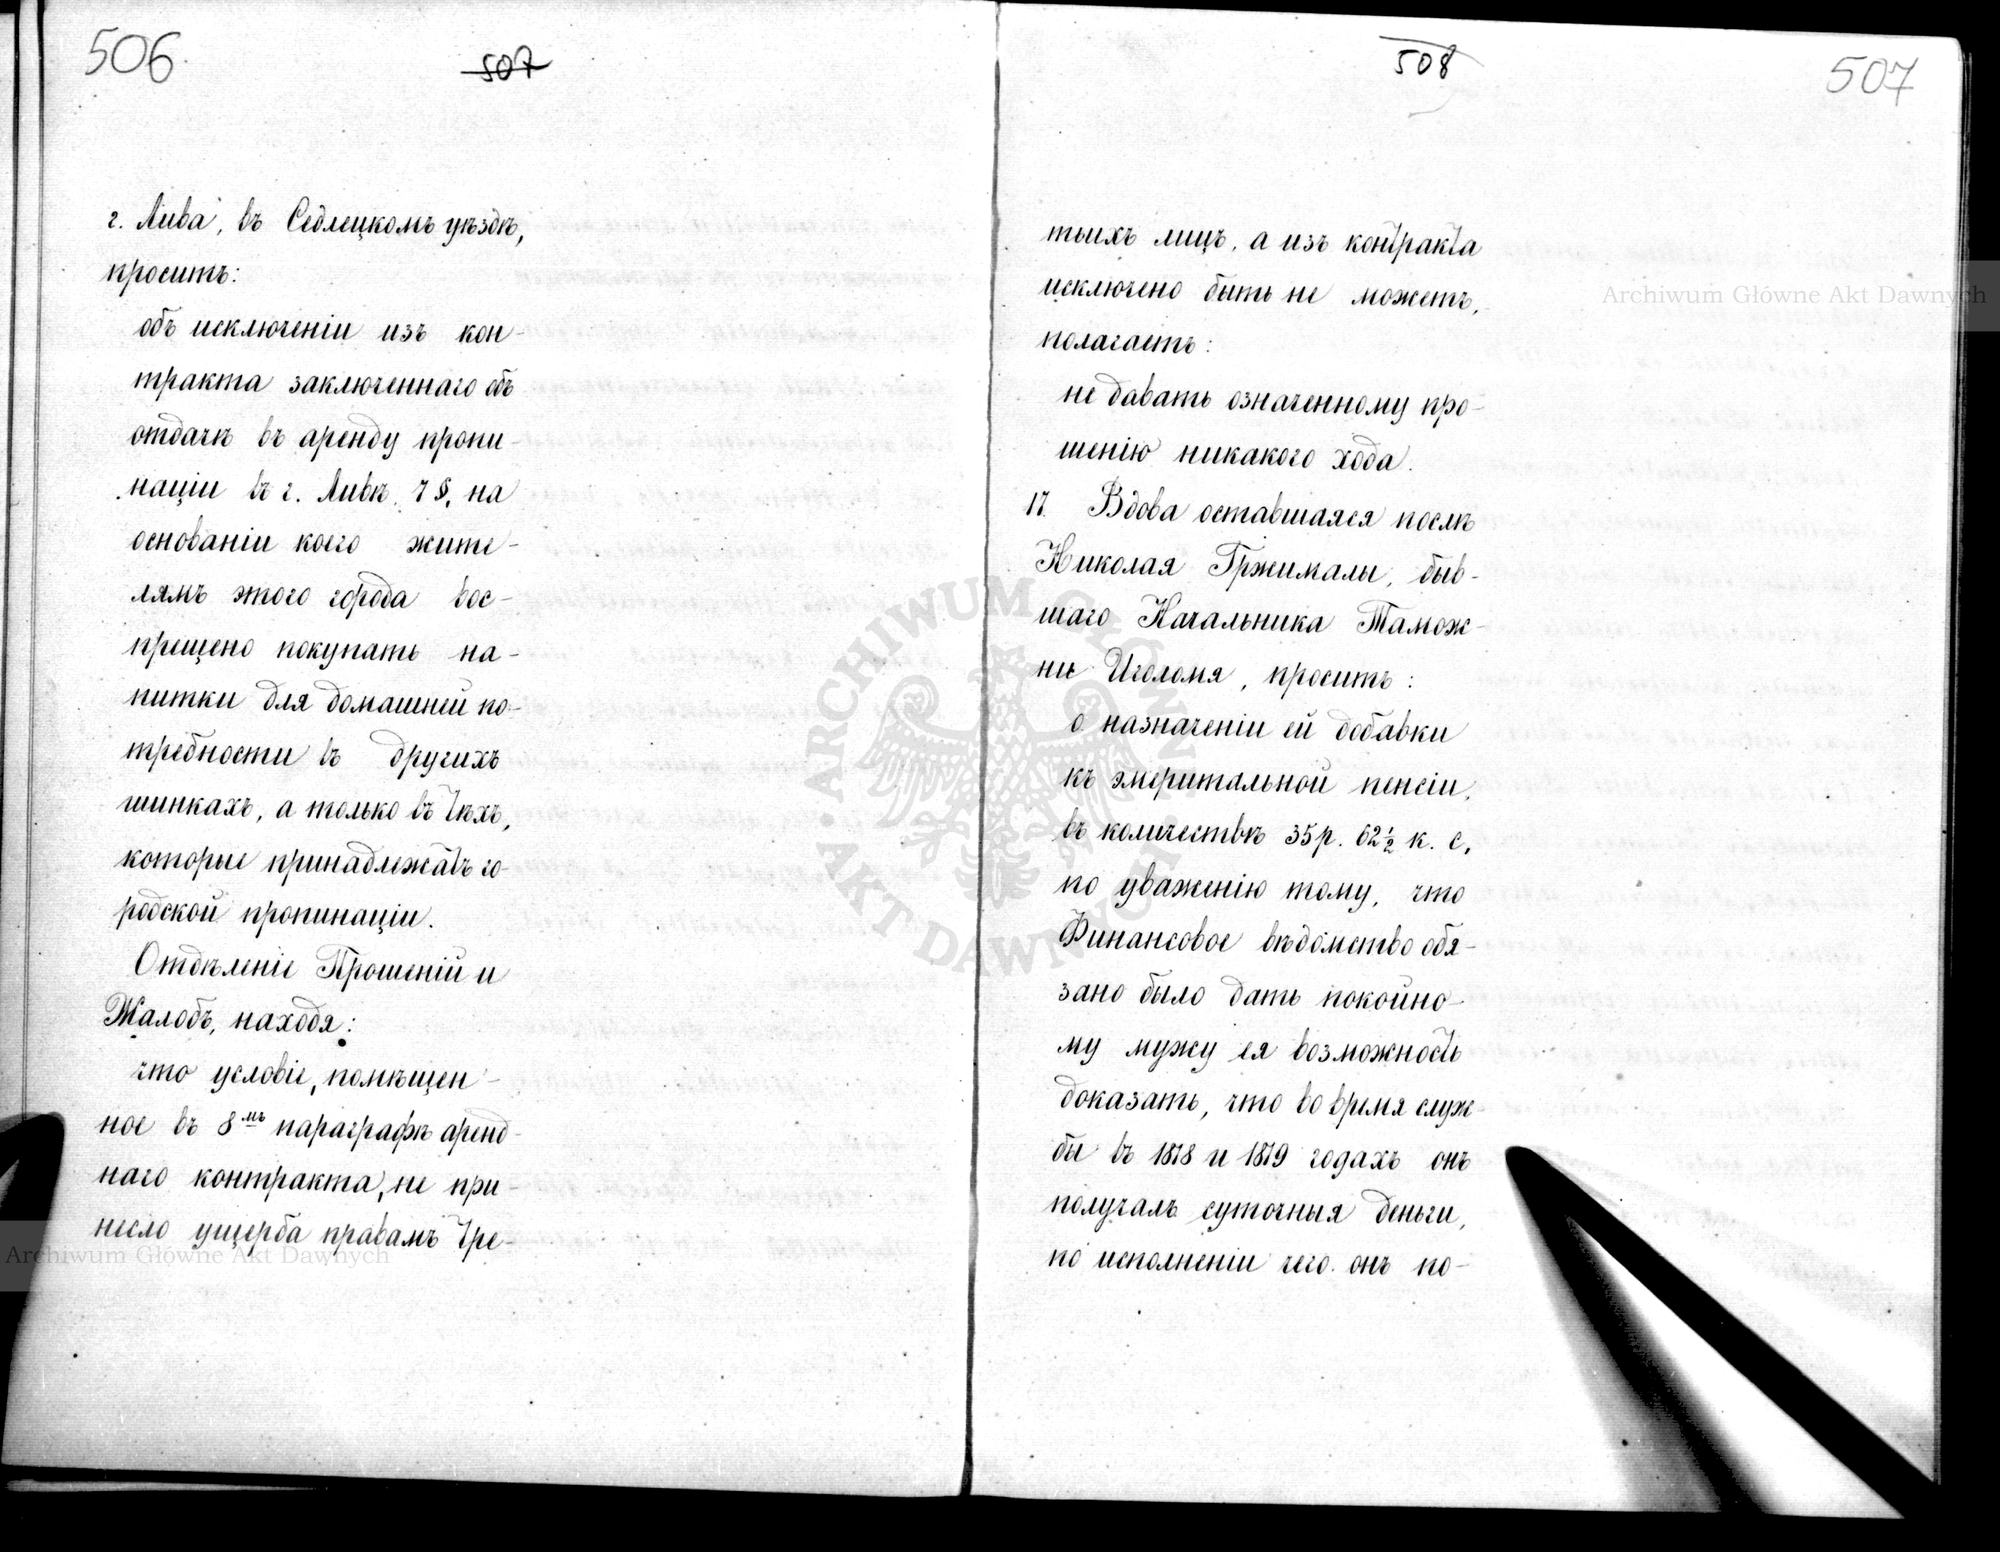 506
507
г. Лива, въ Седлецкомъ уѣздѣ,
проситъ:
объ исключеніи изъ кон-
тракта заключеннаго объ
отдачѣ въ аренду пропи-
націи въ г. Ливѣ, 7 §, на
основаніи коего жите-
лямъ этого города вос-
прещено покупать на-
питки для домашней по-
требности въ другихъ
шинкахъ, а только въ тѣхъ,
которые принадлежатъ го-
родской пропинаціи.
Отдѣленіе Прошеній и
Жалобъ, находя:
что условіе, помѣщен-
ное въ 8мъ параграфѣ аренд-
наго контракта, не при-
несло ущерба правамъ тре-
Archiwum Główne Akt Dawnych
508
507
тьихъ лицъ, а изъ контракта
исключено быть не можетъ,
полагаетъ:
не давать означенному про-
шенію никакого хода.
17. Вдова оставшаяся послѣ
Николая Гржималы, быв-
шаго Начальника Тамож-
ни Иголомя, проситъ:
о назначеніи ей добавки
къ эмеритальной пенсіи,
въ количествѣ 35 р. 62 1/2 к. с.
по уваженію тому, что
Финансовое вѣдомство обя-
зано было дать покойно-
му мужу ея возможность
доказать, что во время служ-
бы въ 1818 и 1819 годахъ онъ
получалъ суточныя деньги,
по исполненіи чего онъ по-
Archiwum Główne Akt Dawnych
ARCHIWUM GŁÓWNE
AKT DAWNYCH